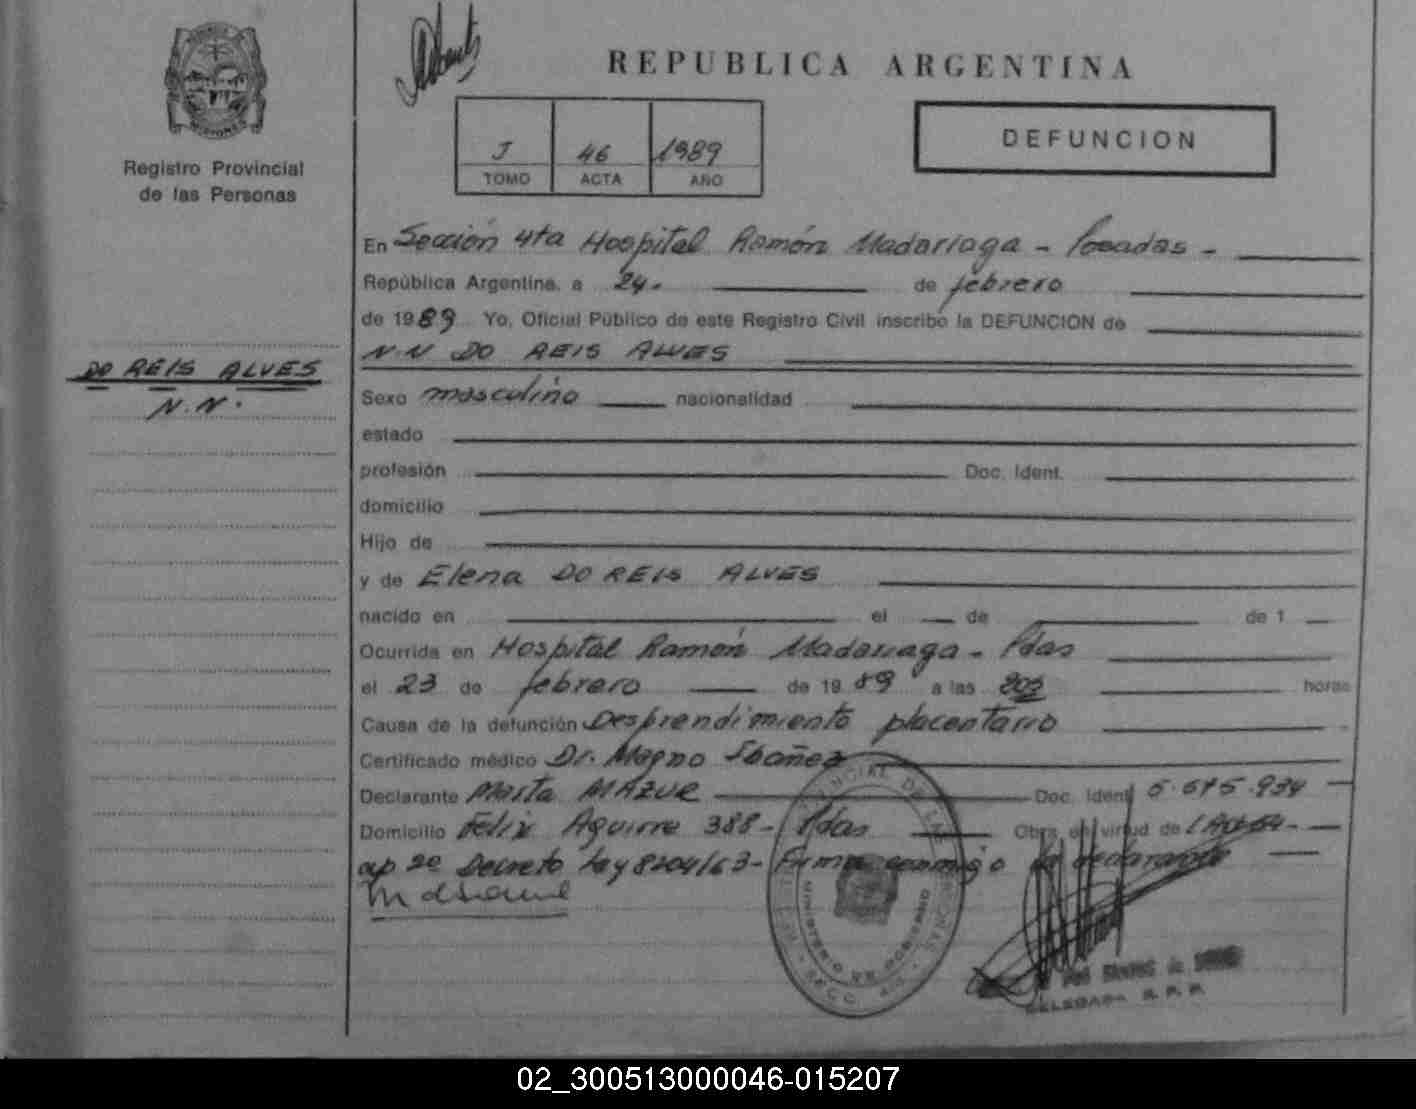 REPUBLICA ARGENTINA
MISIONES
Registro Provincial
de las Personas
J 46 1989
TOMO ACTA AÑO
DEFUNCION
DO REIS ALVES
N.N.
En Sección 4ta Hospital Ramón Madariaga - Posadas -
República Argentina, a 24. de febrero
de 1989 Yo, Oficial Público de este Registro Civil inscribo la DEFUNCION de
N.N DO REIS ALVES
Sexo masculino nacionalidad
estado
profesión Doc. Ident.
domicilio
Hijo de
y de Elena DO REIS ALVES
nacido en el de de 1
Ocurrida en Hospital Ramón Madariaga - Pdas
el 23 de febrero de 1989 a las horas
Causa de la defunción Desprendimiento placentario
Certificado médico Dr. Magno Ibañez
Declarante Marta MAZUR Doc. Ident. 5.675.934
Domicilio Felix Aguirre 388 - Pdas Obra en virtud de
ap 2º Decreto Ley 8204/63 - Firma conmigo la declarante
MINISTERIO DE GOBIERNO
DELEGADA R. P. P.
02_300513000046-015207